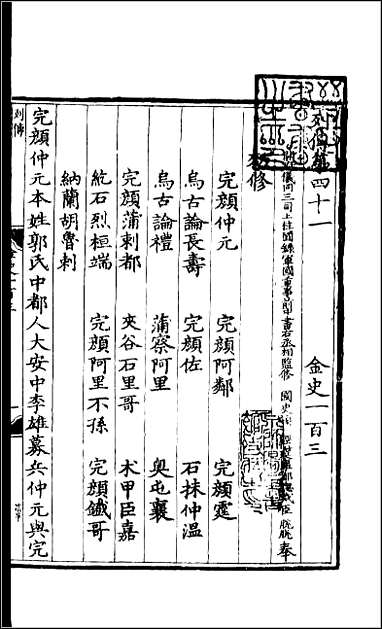 列傳第四十一 金史一百三
開府儀同三司上柱國錄軍國重事前中書右丞相監修國史領經筵事都總裁臣脫脫奉
敕修
完顔仲元 完顔阿鄰 完顔霆
烏古論長壽 完顔佐 石抹仲温
烏古論禮 蒲察阿里 奥屯襄
完顔蒲剌都 夾谷石里哥 术甲臣嘉
紇石烈桓端 完顔阿里不孫 完顔鐵哥
納蘭胡魯剌
完顔仲元本姓郭氏中都人大安中李雄募兵仲元與完
列傳
金史一百三
一